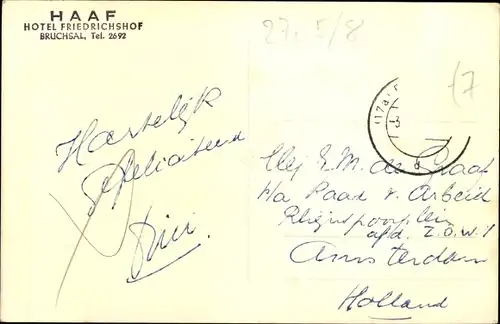 HAAF
HOTEL FRIEDRICHSHOF
BRUCHSAL, Tel. 2692
27. 5/8
17
Hartelijk
Mej E. M. de Graaf
p/a Raad v. Arbeid
Rhijnspoorplein
afd. Z.O.W.1
Amsterdam
Holland